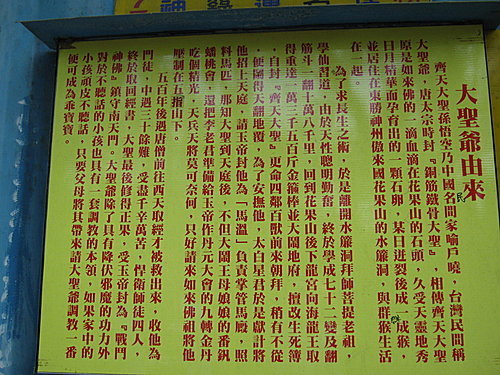 大聖爺由來
齊天大聖孫悟空乃中國名間家喻戶曉,台灣民間稱
大聖爺,唐太宗時封『銅筋鐵骨大聖』,相傳齊天大聖
原是如來佛的一滴血滴在花果山的石頭,久受天靈地秀
日月精華而孕育出的一顆石卵,某日迸裂後成一成猴,
並居住在東勝神州傲來國花果山的水簾洞,與群猴生活
在一起。
為了求長生之術,於是離開水簾洞拜師菩提老祖,
學仙習道,由於天性聰明勤奮,終於學成七十二變及翻
筋斗一翻十萬八千里,回到花果山後下龍宮向海龍王取
得重達一萬三千五百斤金箍棒並大鬧地府,擅改生死簿
,自封『齊天大聖』更命四鄰百獸前來朝拜,稍有不從
,便鬧得天翻地覆,為了安撫他,太白星君於是獻計將
他招上天庭,請玉帝封他為「馬溫」負責掌管馬廄,照
料馬匹,那知大聖到天庭後,不但大鬧王母娘娘的番釩
蟠桃會,還把李老君準備給玉帝作丹元大會的九轉金丹
吃個精光,天兵天將莫可奈何,只好請來如來佛祖將他
壓制在五指山下。
五百年後遇唐僧前往西天取經才被救出來,收他為
門徒,中遇三十餘難,受盡千辛萬苦,悍衛師徒四人,
終於取回經書,大聖最後修得正果,受玉帝封為『戰鬥
神佛』鎮守南天門。大聖爺除了具有降伏邪魔的功力外
對於不聽話的小孩也具有一套調教的本領,如果家中的
小孩頑皮不聽話,只要父母將其帶來請大聖爺調教一番
便可成為乖寶寶。